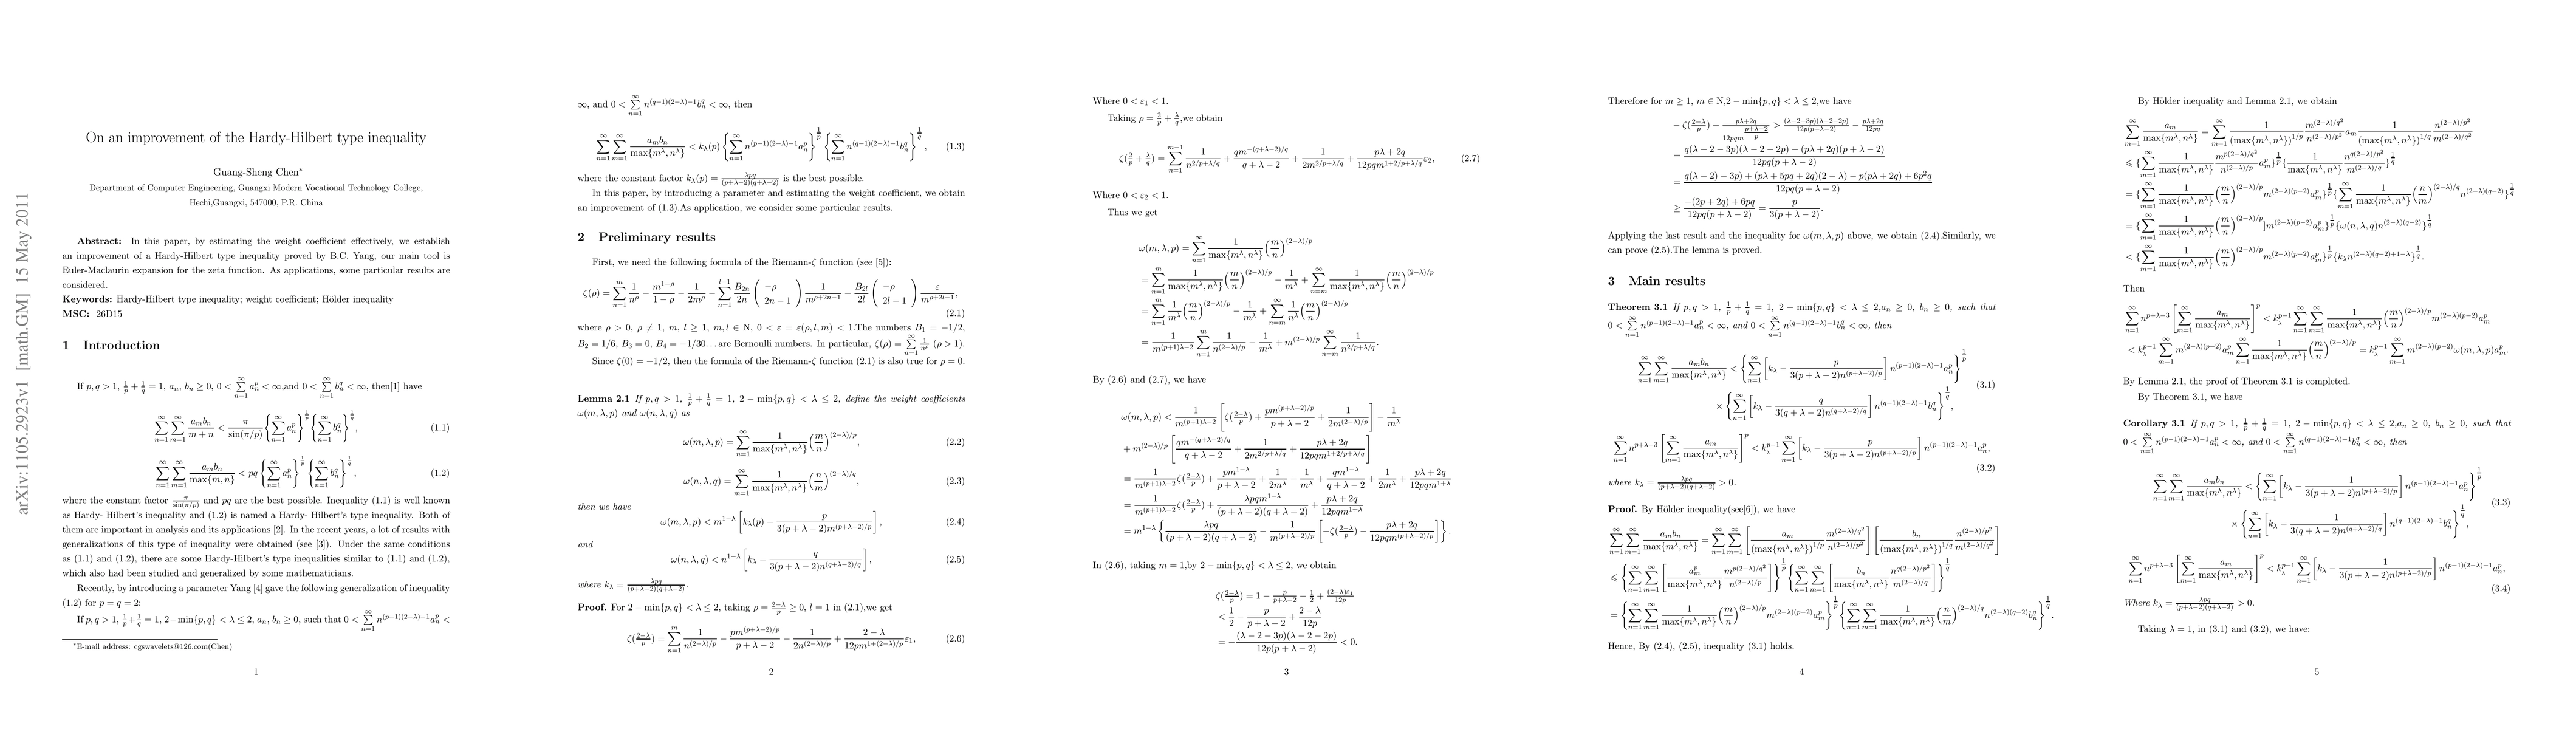 arXiv:1105.2923v1 [math.GM] 15 May 2011
On an improvement of the Hardy-Hilbert type inequality
Guang-Sheng Chen*
Department of Computer Engineering, Guangxi Modern Vocational Technology College,
Hechi,Guangxi, 547000, P.R. China
Abstract: In this paper, by estimating the weight coefficient effectively, we establish
an improvement of a Hardy-Hilbert type inequality proved by B.C. Yang, our main tool is
Euler-Maclaurin expansion for the zeta function. As applications, some particular results are
considered.
Keywords: Hardy-Hilbert type inequality; weight coefficient; Hölder inequality
MSC: 26D15
1 Introduction
If p, q > 1, 1/p + 1/q = 1, a_n, b_n ≥ 0, 0 < ∑_{n=1}^∞ a_n^p < ∞,and 0 < ∑_{n=1}^∞ b_n^q < ∞, then[1] have
∑_{n=1}^∞ ∑_{m=1}^∞ a_m b_n/(m + n) < π/sin(π/p) {∑_{n=1}^∞ a_n^p}^{1/p} {∑_{n=1}^∞ b_n^q}^{1/q}, (1.1)
∑_{n=1}^∞ ∑_{m=1}^∞ a_m b_n/max{m, n} < pq {∑_{n=1}^∞ a_n^p}^{1/p} {∑_{n=1}^∞ b_n^q}^{1/q}, (1.2)
where the constant factor π/sin(π/p) and pq are the best possible. Inequality (1.1) is well known
as Hardy- Hilbert's inequality and (1.2) is named a Hardy- Hilbert's type inequality. Both of
them are important in analysis and its applications [2]. In the recent years, a lot of results with
generalizations of this type of inequality were obtained (see [3]). Under the same conditions
as (1.1) and (1.2), there are some Hardy-Hilbert's type inequalities similar to (1.1) and (1.2),
which also had been studied and generalized by some mathematicians.
Recently, by introducing a parameter Yang [4] gave the following generalization of inequality
(1.2) for p = q = 2:
If p, q > 1, 1/p + 1/q = 1, 2−min{p, q} < λ ≤ 2, a_n, b_n ≥ 0, such that 0 < ∑_{n=1}^∞ n^{(p−1)(2−λ)−1} a_n^p <
*E-mail address: cgswavelets@126.com(Chen)
1
∞, and 0 < ∑_{n=1}^∞ n^{(q−1)(2−λ)−1} b_n^q < ∞, then
∑_{n=1}^∞ ∑_{m=1}^∞ a_m b_n/max{m^λ, n^λ} < k_λ(p) {∑_{n=1}^∞ n^{(p−1)(2−λ)−1} a_n^p}^{1/p} {∑_{n=1}^∞ n^{(q−1)(2−λ)−1} b_n^q}^{1/q}, (1.3)
where the constant factor k_λ(p) = λpq/((p+λ−2)(q+λ−2)) is the best possible.
In this paper, by introducing a parameter and estimating the weight coefficient, we obtain
an improvement of (1.3).As application, we consider some particular results.
2 Preliminary results
First, we need the following formula of the Riemann-ζ function (see [5]):
ζ(ρ) = ∑_{n=1}^m 1/n^ρ − m^{1−ρ}/(1−ρ) − 1/(2m^ρ) − ∑_{n=1}^{l−1} B_{2n}/2n (−ρ 2n − 1) 1/m^{ρ+2n−1} − B_{2l}/2l (−ρ 2l − 1) ε/m^{ρ+2l−1},
(2.1)
where ρ > 0, ρ ≠ 1, m, l ≥ 1, m, l ∈ N, 0 < ε = ε(ρ, l, m) < 1.The numbers B_1 = −1/2,
B_2 = 1/6, B_3 = 0, B_4 = −1/30...are Bernoulli numbers. In particular, ζ(ρ) = ∑_{n=1}^∞ 1/n^ρ (ρ > 1).
Since ζ(0) = −1/2, then the formula of the Riemann-ζ function (2.1) is also true for ρ = 0.
Lemma 2.1 If p, q > 1, 1/p + 1/q = 1, 2 − min{p, q} < λ ≤ 2, define the weight coefficients
ω(m, λ, p) and ω(n, λ, q) as
ω(m, λ, p) = ∑_{n=1}^∞ 1/max{m^λ, n^λ} (m/n)^{(2−λ)/p}, (2.2)
ω(n, λ, q) = ∑_{m=1}^∞ 1/max{m^λ, n^λ} (n/m)^{(2−λ)/q}, (2.3)
then we have
ω(m, λ, p) < m^{1−λ} [k_λ(p) − p/(3(p + λ − 2)m^{(p+λ−2)/p})], (2.4)
and
ω(n, λ, q) < n^{1−λ} [k_λ − q/(3(q + λ − 2)n^{(q+λ−2)/q})], (2.5)
where k_λ = λpq/((p+λ−2)(q+λ−2)).
Proof. For 2 − min{p, q} < λ ≤ 2, taking ρ = (2−λ)/p ≥ 0, l = 1 in (2.1),we get
ζ((2−λ)/p) = ∑_{n=1}^m 1/n^{(2−λ)/p} − pm^{(p+λ−2)/p}/(p + λ − 2) − 1/(2n^{(2−λ)/p}) + (2 − λ)/(12pm^{1+(2−λ)/p}) ε_1, (2.6)
2
Where 0 < ε_1 < 1.
Taking ρ = 2/p + λ/q,we obtain
ζ(2/p + λ/q) = ∑_{n=1}^{m−1} 1/n^{2/p+λ/q} + qm^{−(q+λ−2)/q}/(q + λ − 2) + 1/(2m^{2/p+λ/q}) + (pλ + 2q)/(12pqm^{1+2/p+λ/q}) ε_2, (2.7)
Where 0 < ε_2 < 1.
Thus we get
ω(m, λ, p) = ∑_{n=1}^∞ 1/max{m^λ, n^λ} (m/n)^{(2−λ)/p}
= ∑_{n=1}^m 1/max{m^λ, n^λ} (m/n)^{(2−λ)/p} − 1/m^λ + ∑_{n=m}^∞ 1/max{m^λ, n^λ} (m/n)^{(2−λ)/p}
= ∑_{n=1}^m 1/m^λ (m/n)^{(2−λ)/p} − 1/m^λ + ∑_{n=m}^∞ 1/n^λ (m/n)^{(2−λ)/p}
= 1/m^{(p+1)λ−2} ∑_{n=1}^m 1/n^{(2−λ)/p} − 1/m^λ + m^{(2−λ)/p} ∑_{n=m}^∞ 1/n^{2/p+λ/q}.
By (2.6) and (2.7), we have
ω(m, λ, p) < 1/m^{(p+1)λ−2} [ζ((2−λ)/p) + pm^{(p+λ−2)/p}/(p + λ − 2) + 1/(2m^{(2−λ)/p})] − 1/m^λ
+ m^{(2−λ)/p} [qm^{−(q+λ−2)/q}/(q + λ − 2) + 1/(2m^{2/p+λ/q}) + (pλ + 2q)/(12pqm^{1+2/p+λ/q})]
= 1/m^{(p+1)λ−2} ζ((2−λ)/p) + pm^{1−λ}/(p + λ − 2) + 1/(2m^λ) − 1/m^λ + qm^{1−λ}/(q + λ − 2) + 1/(2m^λ) + (pλ + 2q)/(12pqm^{1+λ})
= 1/m^{(p+1)λ−2} ζ((2−λ)/p) + λpqm^{1−λ}/((p + λ − 2)(q + λ − 2)) + (pλ + 2q)/(12pqm^{1+λ})
= m^{1−λ} {λpq/((p + λ − 2)(q + λ − 2)) − 1/m^{(p+λ−2)/p} [−ζ((2−λ)/p) − (pλ + 2q)/(12pqm^{(p+λ−2)/p})]}.
In (2.6), taking m = 1,by 2 − min{p, q} < λ ≤ 2, we obtain
ζ((2−λ)/p) = 1 − p/(p+λ−2) − 1/2 + (2−λ)ε_1/12p
< 1/2 − p/(p + λ − 2) + (2 − λ)/12p
= −(λ − 2 − 3p)(λ − 2 − 2p)/(12p(p + λ − 2)) < 0.
3
Therefore for m ≥ 1, m ∈ N,2 − min{p, q} < λ ≤ 2,we have
− ζ((2−λ)/p) − (pλ+2q)/(12pqm^{(p+λ−2)/p}) > (λ−2−3p)(λ−2−2p)/(12p(p+λ−2)) − (pλ+2q)/12pq
= (q(λ − 2 − 3p)(λ − 2 − 2p) − (pλ + 2q)(p + λ − 2))/(12pq(p + λ − 2))
= (q(λ − 2) − 3p) + (pλ + 5pq + 2q)(2 − λ) − p(pλ + 2q) + 6p^2q)/(12pq(p + λ − 2))
≥ (−(2p + 2q) + 6pq)/(12pq(p + λ − 2)) = p/(3(p + λ − 2)).
Applying the last result and the inequality for ω(m, λ, p) above, we obtain (2.4).Similarly, we
can prove (2.5).The lemma is proved.
3 Main results
Theorem 3.1 If p, q > 1, 1/p + 1/q = 1, 2 − min{p, q} < λ ≤ 2,a_n ≥ 0, b_n ≥ 0, such that
0 < ∑_{n=1}^∞ n^{(p−1)(2−λ)−1} a_n^p < ∞, and 0 < ∑_{n=1}^∞ n^{(q−1)(2−λ)−1} b_n^q < ∞, then
∑_{n=1}^∞ ∑_{m=1}^∞ a_m b_n/max{m^λ, n^λ} < {∑_{n=1}^∞ [k_λ − p/(3(p + λ − 2)n^{(p+λ−2)/p})] n^{(p−1)(2−λ)−1} a_n^p}^{1/p}
× {∑_{n=1}^∞ [k_λ − q/(3(q + λ − 2)n^{(q+λ−2)/q})] n^{(q−1)(2−λ)−1} b_n^q}^{1/q}, (3.1)
∑_{n=1}^∞ n^{p+λ−3} [∑_{m=1}^∞ a_m/max{m^λ, n^λ}]^p < k_λ^{p−1} ∑_{n=1}^∞ [k_λ − p/(3(p + λ − 2)n^{(p+λ−2)/p})] n^{(p−1)(2−λ)−1} a_n^p,
(3.2)
where k_λ = λpq/((p+λ−2)(q+λ−2)) > 0.
Proof. By Hölder inequality(see[6]), we have
∑_{n=1}^∞ ∑_{m=1}^∞ a_m b_n/max{m^λ, n^λ} = ∑_{n=1}^∞ ∑_{m=1}^∞ [a_m/(max{m^λ, n^λ})^{1/p} m^{(2−λ)/q^2}/n^{(2−λ)/p^2}] [b_n/(max{m^λ, n^λ})^{1/q} n^{(2−λ)/p^2}/m^{(2−λ)/q^2}]
⩽ {∑_{n=1}^∞ ∑_{m=1}^∞ [a_m^p/max{m^λ, n^λ} m^{p(2−λ)/q^2}/n^{(2−λ)/p}]}^{1/p} {∑_{n=1}^∞ ∑_{m=1}^∞ [b_n/max{m^λ, n^λ} n^{q(2−λ)/p^2}/m^{(2−λ)/q}]}^{1/q}
= {∑_{n=1}^∞ ∑_{m=1}^∞ 1/max{m^λ, n^λ} (m/n)^{(2−λ)/p} m^{(2−λ)(p−2)} a_m^p}^{1/p} {∑_{n=1}^∞ ∑_{m=1}^∞ 1/max{m^λ, n^λ} (n/m)^{(2−λ)/q} n^{(2−λ)(q−2)} b_n^q}^{1/q}.
Hence, By (2.4), (2.5), inequality (3.1) holds.
4
By Hölder inequality and Lemma 2.1, we obtain
∑_{m=1}^∞ a_m/max{m^λ, n^λ} = ∑_{m=1}^∞ 1/(max{m^λ, n^λ})^{1/p} m^{(2−λ)/q^2}/n^{(2−λ)/p^2} a_m 1/(max{m^λ, n^λ})^{1/q} n^{(2−λ)/p^2}/m^{(2−λ)/q^2}
⩽ {∑_{m=1}^∞ 1/max{m^λ, n^λ} m^{p(2−λ)/q^2}/n^{(2−λ)/p} a_m^p}^{1/p} {1/max{m^λ, n^λ} n^{q(2−λ)/p^2}/m^{(2−λ)/q}}^{1/q}
= {∑_{m=1}^∞ 1/max{m^λ, n^λ} (m/n)^{(2−λ)/p} m^{(2−λ)(p−2)} a_m^p}^{1/p} {∑_{m=1}^∞ 1/max{m^λ, n^λ} (n/m)^{(2−λ)/q} n^{(2−λ)(q−2)}}^{1/q}
= {∑_{m=1}^∞ 1/max{m^λ, n^λ} (m/n)^{(2−λ)/p}]m^{(2−λ)(p−2)} a_m^p}^{1/p} {ω(n, λ, q)n^{(2−λ)(q−2)}}^{1/q}
< {∑_{m=1}^∞ 1/max{m^λ, n^λ} (m/n)^{(2−λ)/p} m^{(2−λ)(p−2)} a_m^p}^{1/p} {k_λ n^{(2−λ)(q−2)+1−λ}}^{1/q}.
Then
∑_{n=1}^∞ n^{p+λ−3} [∑_{m=1}^∞ a_m/max{m^λ, n^λ}]^p < k_λ^{p−1} ∑_{n=1}^∞ ∑_{m=1}^∞ 1/max{m^λ, n^λ} (m/n)^{(2−λ)/p} m^{(2−λ)(p−2)} a_m^p
< k_λ^{p−1} ∑_{m=1}^∞ m^{(2−λ)(p−2)} a_m^p ∑_{n=1}^∞ 1/max{m^λ, n^λ} (m/n)^{(2−λ)/p} = k_λ^{p−1} ∑_{m=1}^∞ m^{(2−λ)(p−2)} ω(m, λ, p)a_m^p.
By Lemma 2.1, the proof of Theorem 3.1 is completed.
By Theorem 3.1, we have
Corollary 3.1 If p, q > 1, 1/p + 1/q = 1, 2 − min{p, q} < λ ≤ 2,a_n ≥ 0, b_n ≥ 0, such that
0 < ∑_{n=1}^∞ n^{(p−1)(2−λ)−1} a_n^p < ∞, and 0 < ∑_{n=1}^∞ n^{(q−1)(2−λ)−1} b_n^q < ∞, then
∑_{n=1}^∞ ∑_{m=1}^∞ a_m b_n/max{m^λ, n^λ} < {∑_{n=1}^∞ [k_λ − 1/(3(p + λ − 2)n^{(p+λ−2)/p})] n^{(p−1)(2−λ)−1} a_n^p}^{1/p}
× {∑_{n=1}^∞ [k_λ − 1/(3(q + λ − 2)n^{(q+λ−2)/q})] n^{(q−1)(2−λ)−1} b_n^q}^{1/q}, (3.3)
∑_{n=1}^∞ n^{p+λ−3} [∑_{m=1}^∞ a_m/max{m^λ, n^λ}]^p < k_λ^{p−1} ∑_{n=1}^∞ [k_λ − 1/(3(p + λ − 2)n^{(p+λ−2)/p})] n^{(p−1)(2−λ)−1} a_n^p,
(3.4)
Where k_λ = λpq/((p+λ−2)(q+λ−2)) > 0.
Taking λ = 1, in (3.1) and (3.2), we have:
5